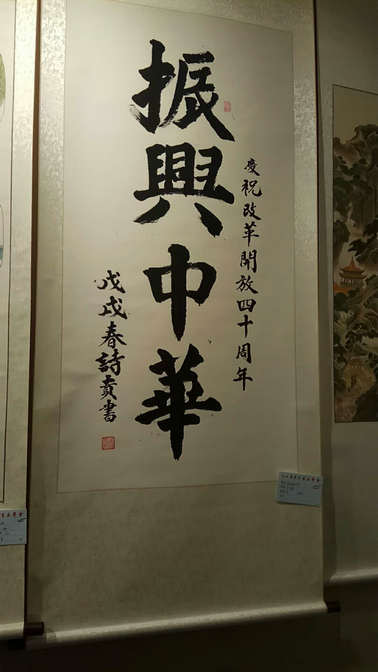 慶祝改革開放四十周年
振興中華
戊戌春詩賁書